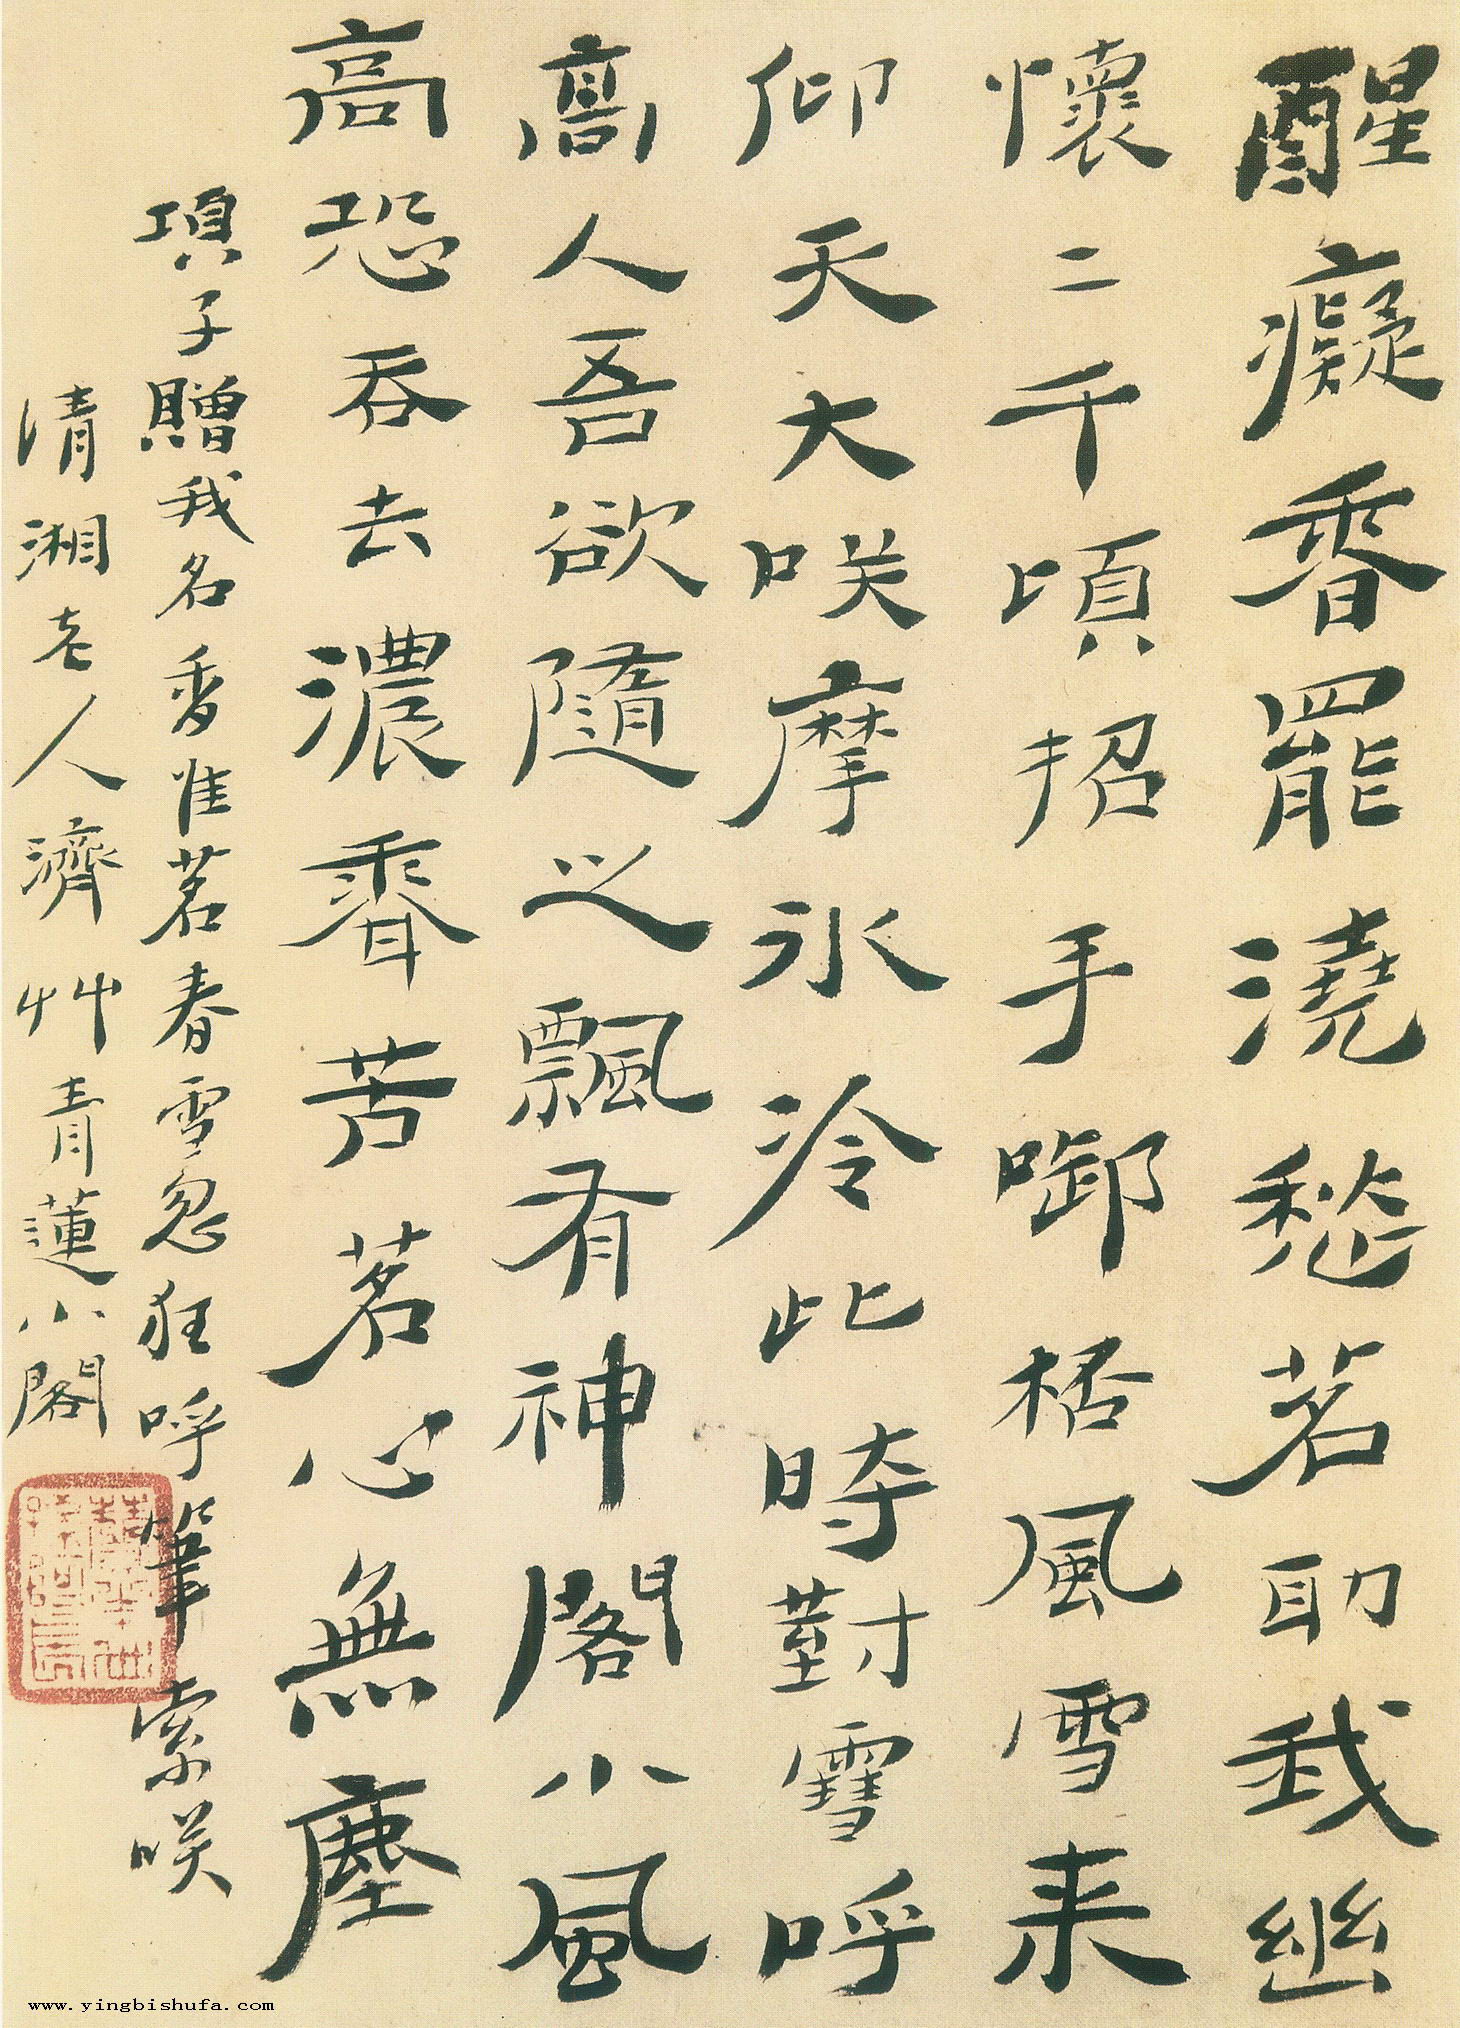 醒癡香罷澆愁茗助我幽
懷二千頃招手啣桮風雪来
仰天大咲摩氷冷此時對雪呼
高人吾欲隨之飄有神閣小風
高恐吞去濃香苦茗心無塵
項子贈我名香准茗春雪忽狂呼筆索咲
清湘老人濟艸青蓮小閣
www.yingbishufa.com